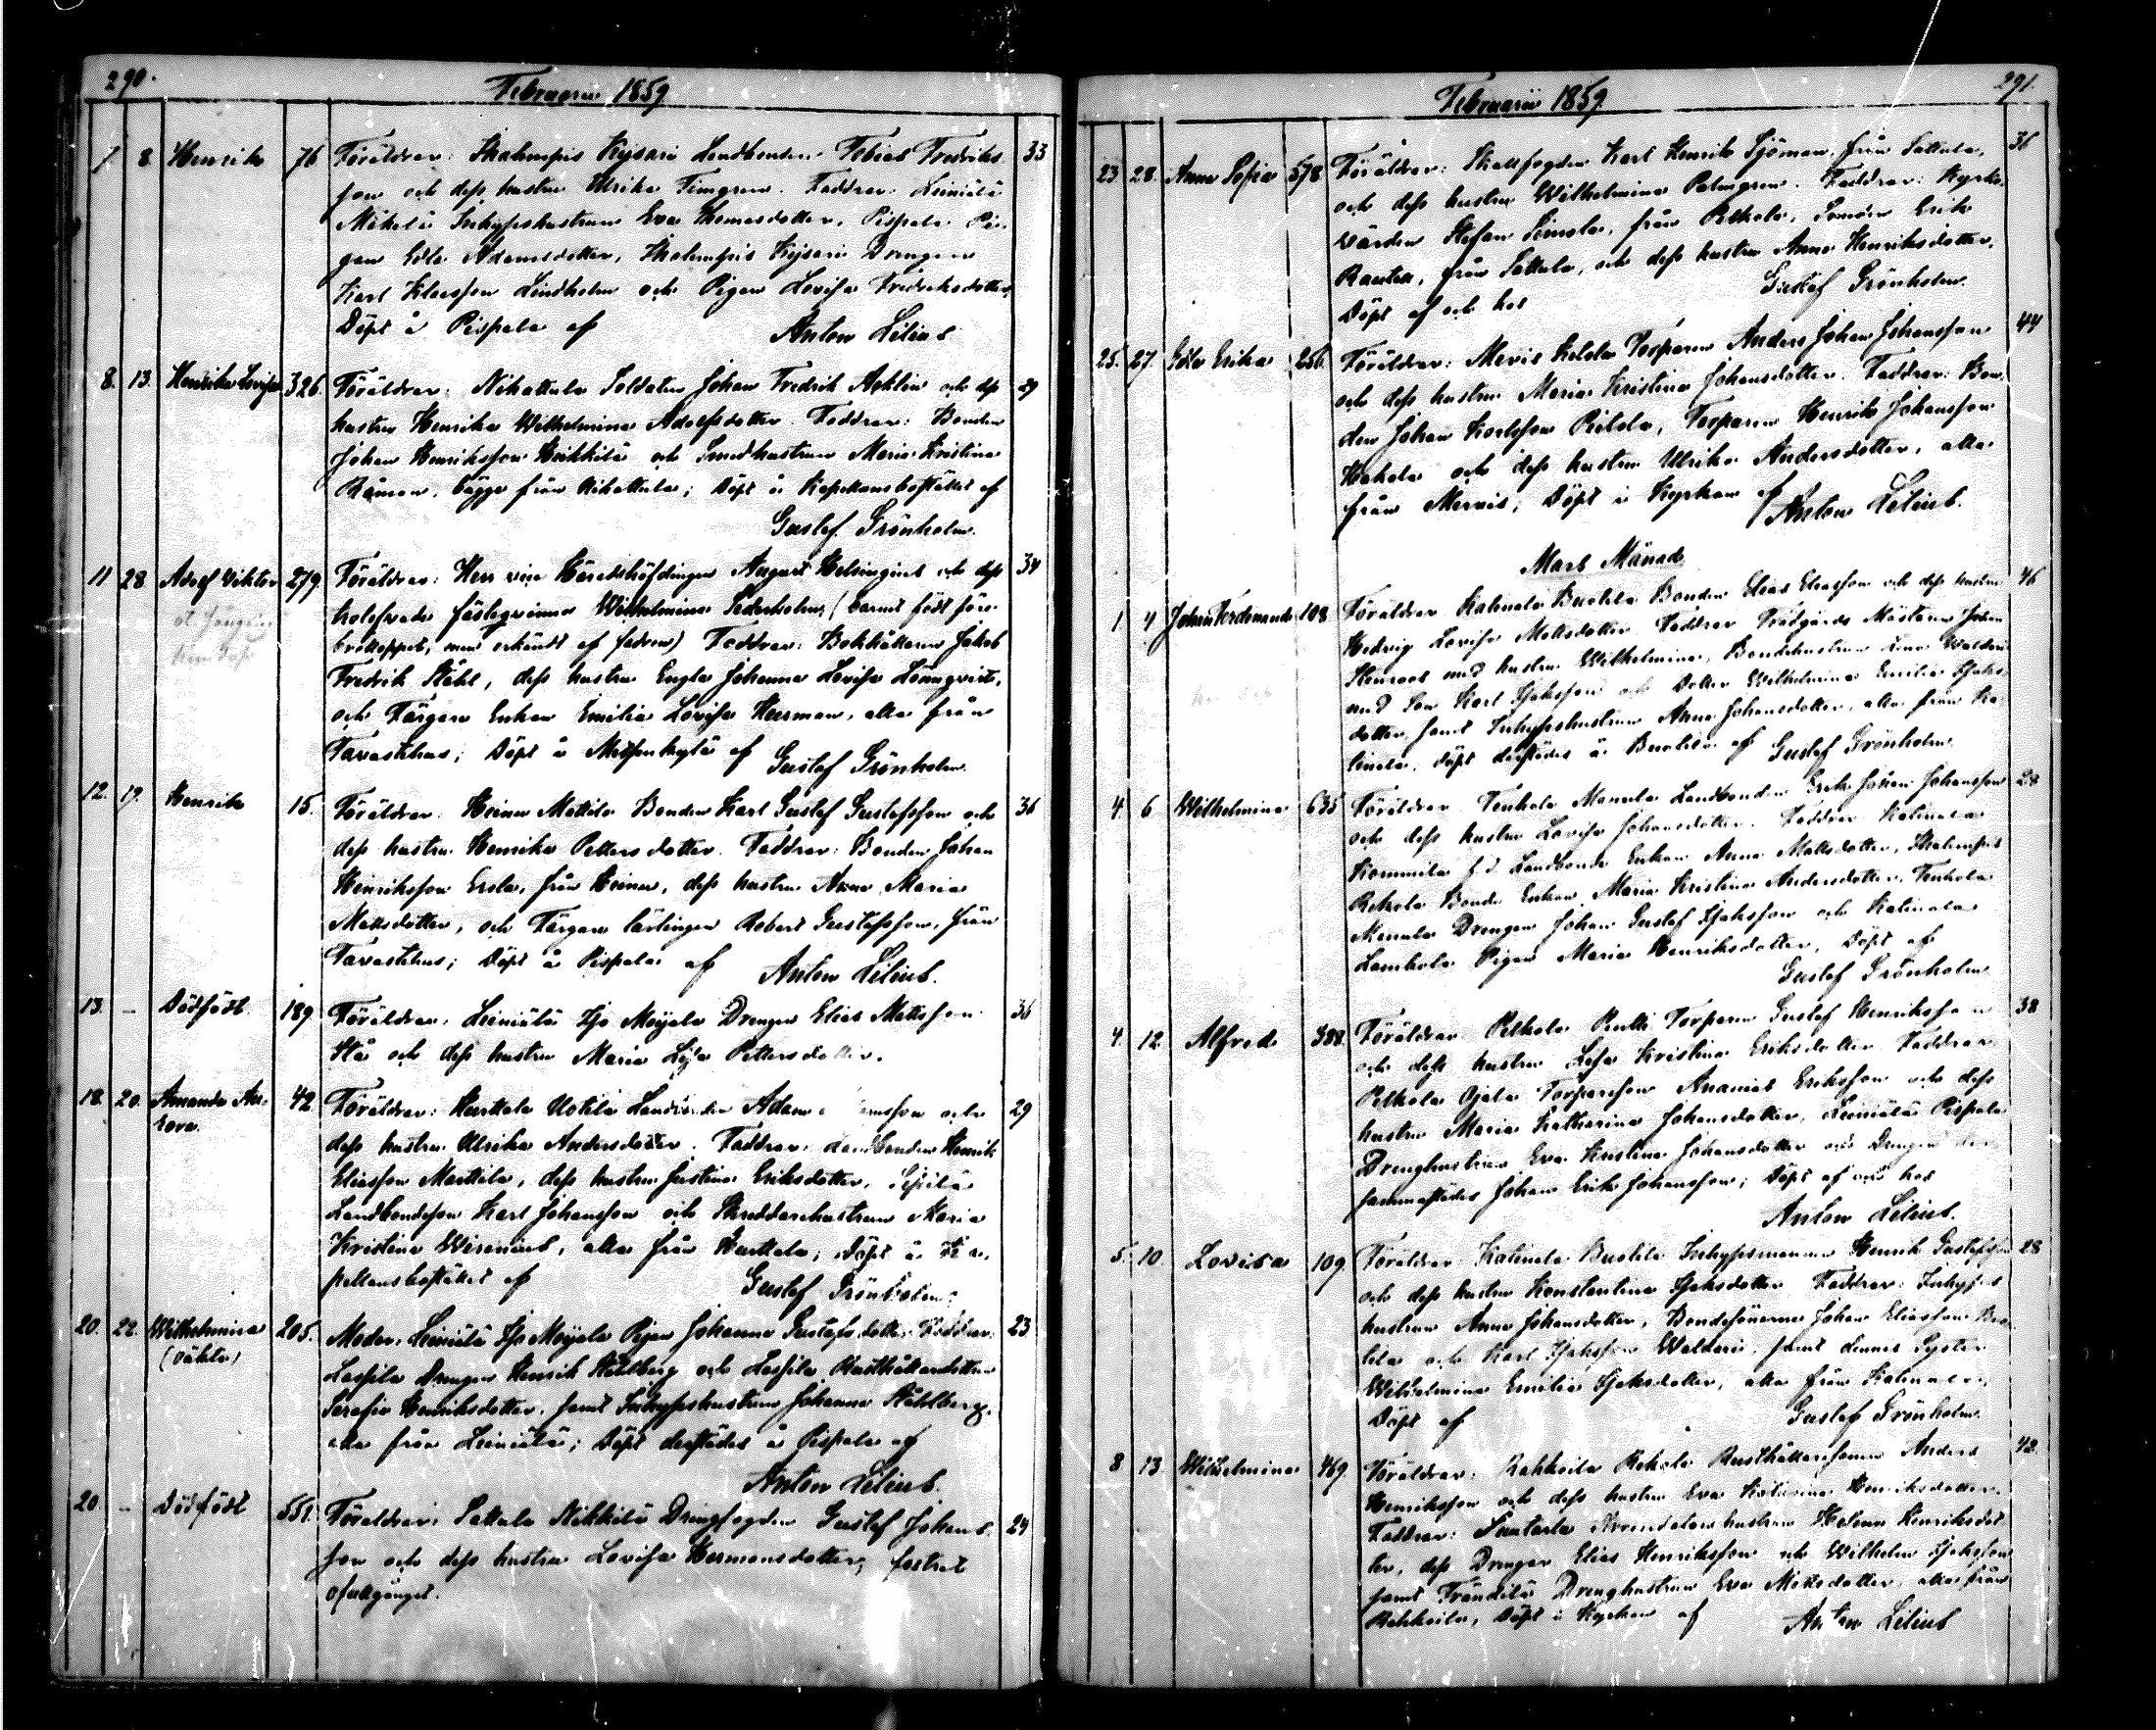 290.
Februarii 1859
7 8. Henrik 76 Föräldrar: Thalempis Kejsari Landbonden Tobias Fredriks 33
son och dess hustru Ulrika Timgren. Faddrar: Luiniälä
Mikelä Inhyseshustrun Eva Thomasdotter, Pispala Pi-
gan Edla Adamsdotter, Thalempis Kejsari Drengen
Karl Klaesson Lindholm och Pigan Lovisa Fredriksdotter,
Döpt å Pispala af Anton Lilius.
8. 13. Henrika Lovisa 326. Föräldrar: Nihattula Soldaten Johan Fredrik Asklin och dess 29
hustru Henrika Wilhelmina Adolfsdotter. Faddrar: Bonden
Johan Henriksson Heikkilä och Smedhustrun Maria Kristina
Råman, bägge från Nihattula; Döpt å Kapellansbostället af
Gustaf Grönholm.
11 28 Adolf Viktor 279. Föräldrar: Herr vice Häradshöfdingen August Helsingius och dess 34
fästeqvinna Wilhelmina Sederholm, (barnet födt före
brölloppet, men erkändt af fadren) Faddrar: Bokhållaren Jakob
Fredrik Ståhl, dess hustru Engla Johanna Lovisa Lönnqvist,
och Färgare Enkan Emilia Lovisa Heerman, alla från
Tavastehus; Döpt å af Gustaf Grönholm.
12. 19. Henrik 15. Föräldrar: Heinu Mattila Bonden Karl Gustaf Gustafsson och 36
dess hustru Henrika Pettersdotter. Faddrar: Bonden Johan
Henriksson Erola, från Heinu, dess hustru Anna Maria
Mattsdotter, och Färgare lärlingen Robert Gustafsson, från
Tavastehus; Döpt å Pispala af Anton Lilius.
13. – Dödfödt. 189. Föräldrar: Luiniälä Iso Moijala Drengen Elias Mattsson 36
Stå och dess hustru Maria Lisa Pettersdotter.
18. 20. Amanda Au- 42 Föräldrar: Hurttala Uotila Landbonden Adam och 29
rora. dess hustru Ulrika Andersdotter. Faddrar: Landbonden Henrik
Eliasson Marttila, dess hustru Justina Eriksdotter,
Landbondeson Karl Johansson och Skreddarehustrun Maria
Kristina Wirenius, alla från Hurttala; Döpt å Ka-
pellansbostället af Gustaf Grönholm.
20. 22. Wilhelmina 205. Moder: Luiniälä Iso Moijala Pigan Johanna Gustafsdotter. Faddrar: 23
(oäkta) Laspila Drengen Henrik Ståhlberg och Laspila Rusthållaredottren
Serafia Henriksdotter, samt Inhyseshustrun Johanna Ståhlberg,
alla från Luiniälä; Döpt derstädes å Pispala af
Anton Lilius.
20. – Dödfödt 551. Föräldrar: Sattula Nikkilä Drengfogden Gustaf Johans- 24
son och dess hustru Lovisa Hermansdotter; fostret
ofullgånget.
291.
Februarii 1859.
23 28. Anna Sofia 578 Föräldrar: Skallfogden Karl Henrik Sjöman, från Sattula, 36
och dess hustru Wilhelmina Palmgren. Faddrar: Kyrko-
värden Stefan Simola, från Pelkola, Erik
Rautea, från Sattula, och dess hustru Anna Henriksdotter,
Döpt af och hos Gustaf Grönholm.
25. 27. Edla Erika 256. Föräldrar: Mervis Torparen Anders Johan Johansson 44
och dess hustru Maria Kristina Johansdotter. Faddrar: Bon-
den Johan Karlsson Pielola, Torparen Henrik Johansson
Hakala och dess hustru Ulrika Andersdotter, alla
från Mervis; Döpt i Kyrkan af Anton Lilius.
Mars Månad
1 4 Johan Ferdinand 108 Föräldrar Katinala Buolila Bonden Elias Eliasson och dess hustru 46
Hedvig Lovisa Mattsdotter. Faddrar Trädgårds Mästaren Johan
Stenroos med hustru Wilhelmina, Bondehustrun Lena Waldari
med Son Karl Isaksson och Dotter Wilhelmina Emilia Isaks-
dotter, samt Inhyseshustrun Anna Johansdotter, alla från Ka-
tinala. Döpt derstädes å Buolila af Gustaf Grönholm.
4. 6 Wilhelmina 635 Föräldrar Tenhola Manula Landbonden Erik Johan Johansson 28
och dess hustru Lovisa Johansdotter. Faddrar Katinala
Kommila f.d. Landbonde Enkan Anna Mattsdotter, Thalempis
Rekola Bonde Enkan Maria Kristina Andersdotter, Tenhola
Manula Drengen Johan Gustaf Isaksson och Katinala
Lamhola Pigan Maria Henriksdotter, Döpt af
Gustaf Grönholm
4. 12 Alfred 388. Föräldrar Pelkola Pentti Torparen Gustaf Henriksson 38
och dess hustru Lisa Kristina Eriksdotter Faddrar
Pelkola Ojala Torparson Ananias Eriksson och dess
hustru Maria Katharina Johansdotter, Luiniälä Pispala
Drenghustrun Eva Kristina Johansdotter och Drengen der-
sammastädes Johan Erik Johansson; Döpt af och hos
Anton Lilius.
5. 10. Lovisa 109 Föräldrar Katinala Buolila Inhysesmannen Henrik Gustafsson 28
och dess hustru Konstantina Isaksdotter Faddrar: Inhyses
hustrun Anna Johansdotter, Bondesönerna Johan Eliasson Buo-
lila och Karl Isaksson Waldari, samt dennes Syster
Wilhelmina Emilia Isaksdotter, alla från Katinala.
Döpt af Gustaf Grönholm.
8 13. Wilhelmina 469. Föräldrar: Rahkoila Rekola Rusthållaresonen Anders 42.
Henriksson och dess hustru Eva Katarina Henriksdotter.
Faddrar: Arrendatorshustrun Helena Henriksdot-
ter, dess Drengar Elias Henriksson och Wilhelm Isaksson
samt Frändilä Drenghustrun Eva Mattsdotter, alla från
Rahkoila, Döpt i Kyrkan af Anton Lilius